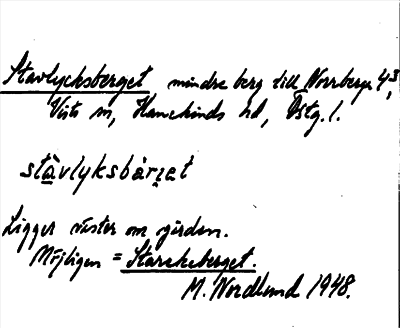 Stavlycksberget mindre berg till Norrberga 4³,
Vists sn, Hanekinds hd, Östg. l.
stàvlyksbàrʒet
Ligger väster om gården.
Möjligen = Starckeberget.
M. Nordlund 1948.